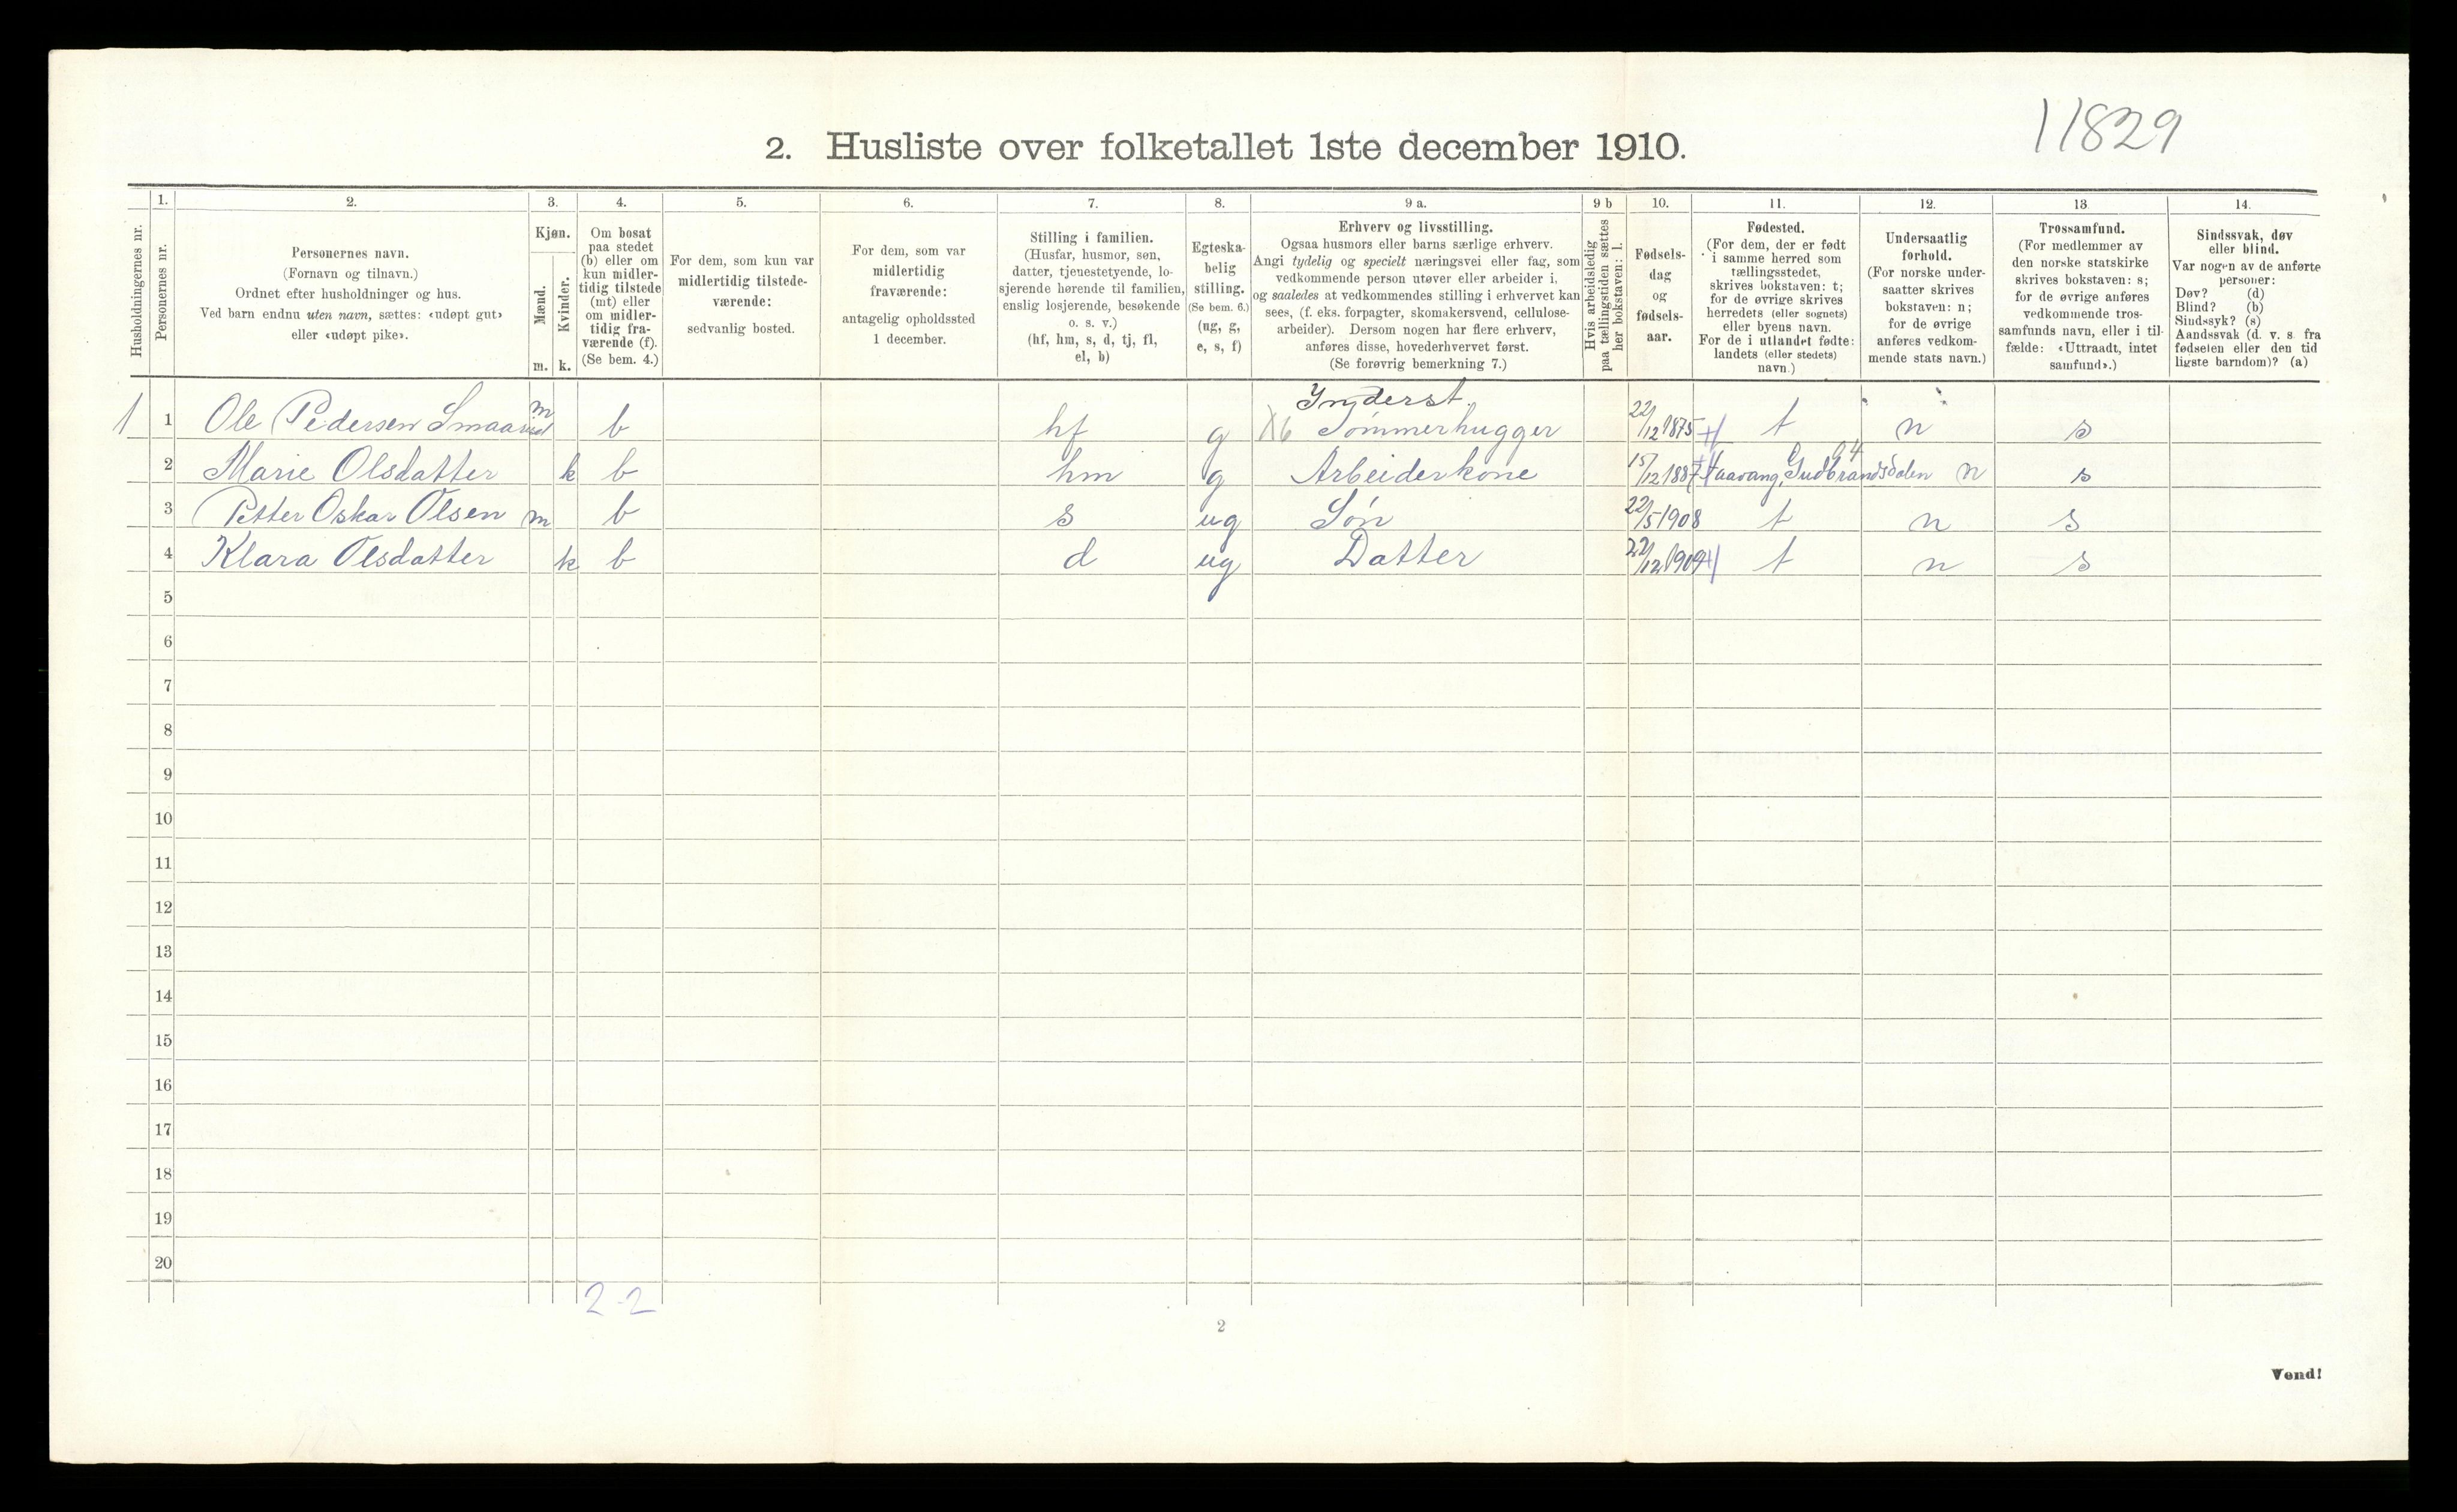 11829
2. Husliste over folketallet 1ste december 1910.
1. 2. 3. 4. 5. 6. 7. 8. 9 a. 9 b 10. 11. 12. 13. 14.
Husholdningernes nr.
Personernes nr.
Personernes navn.
(Fornavn og tilnavn.)
Ordnet efter husholdninger og hus.
Ved barn endnu uten navn, sættes: «udøpt gut»
eller «udøpt pike».
Kjøn.
Mænd.
Kvinder.
m. k.
Om bosat
paa stedet
(b) eller om
kun midler-
tidig tilstede
(mt) eller
om midler-
tidig fra-
værende (f).
(Se bem. 4.)
For dem, som kun var
midlertidig tilstede-
værende:
sedvanlig bosted.
For dem, som var
midlertidig
fraværende:
antagelig opholdssted
1 december.
Stilling i familien.
(Husfar, husmor, søn,
datter, tjenestetyende, lo-
sjerende hørende til familien,
enslig losjerende, besøkende
o. s. v.)
(hf, hm, s, d, tj, fl,
el, b)
Egteska-
belig
stilling.
(Se bem. 6.)
(ug, g,
e, s, f)
Erhverv og livsstilling.
Ogsaa husmors eller barns særlige erhverv.
Angi tydelig og specielt næringsvei eller fag, som
vedkommende person utøver eller arbeider i,
og saaledes at vedkommendes stilling i erhvervet kan
sees, (f. eks. forpagter, skomakersvend, cellulose-
arbeider). Dersom nogen har flere erhverv,
anføres disse, hovederhvervet først.
(Se forøvrig bemerkning 7.)
Hvis arbeidsledig
paa tællingstiden sættes
her bokstaven: l.
Fødsels-
dag
og
fødsels-
aar.
Fødested.
(For dem, der er født
i samme herred som
tællingsstedet,
skrives bokstaven: t;
for de øvrige skrives
herredets (eller sognets)
eller byens navn.
For de i utlandet fødte:
landets (eller stedets)
navn.)
Undersaatlig
forhold.
(For norske under-
saatter skrives
bokstaven: n;
for de øvrige
anføres vedkom-
mende stats navn.)
Trossamfund.
(For medlemmer av
den norske statskirke
skrives bokstaven: s;
for de øvrige anføres
vedkommende tros-
samfunds navn, eller i til-
fælde: «Uttraadt, intet
samfund».)
Sindssvak, døv
eller blind.
Var nogen av de anførte
personer:
Døv? (d)
Blind? (b)
Sindssyk? (s)
Aandssvak (d. v. s. fra
fødselen eller den tid
ligste barndom)? (a)
Inderst.
1 1 Ole Pedersen m b hf g X6 Tømmerhugger 22/12 1875 t n s
2 Marie Olsdatter k b hm g Arbeiderkone 15/12 1887 Gudbrandsdalen n s
3 Petter Oskar Olsen m b s ug Søn 22/5 1908 t n s
4 Klara Olsdatter k b d ug Datter 22/12 1909 t n s
5
6
7
8
9
10
11
12
13
14
15
16
17
18
19
20
2-2
2
Vend!